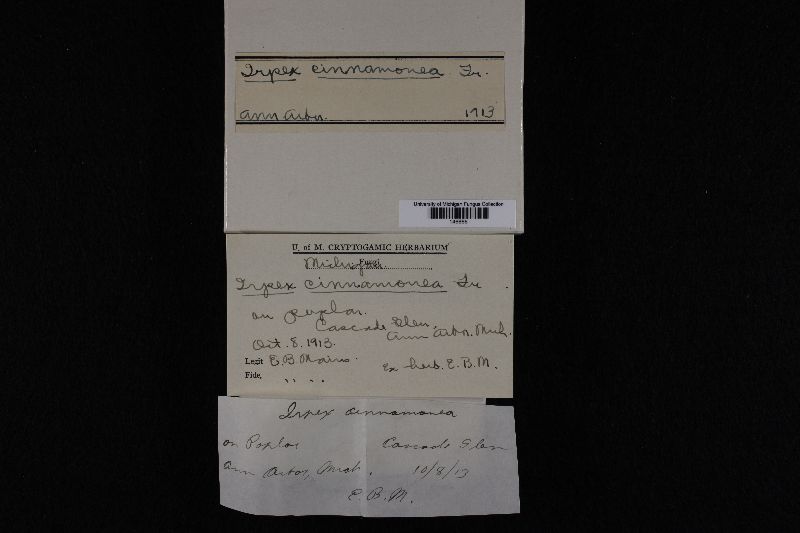 Irpex cinnamonea Fr.
Ann Arbor. 1913
University of Michigan Fungus Collection
U. of M. CRYPTOGAMIC HERBARIUM
Fungi
Irpex cinnamonea Fr.
on poplar.
Cascade Glen,
Ann Arbor. Mich.
Oct. 8. 1913.
Legit E.B. Mains.
Ex herb. E.B.M.
Fide, " "
Irpex cinnamonea
on Poplar Cascade Glen
Ann Arbor, Mich. 10/8/13
E.B.M.